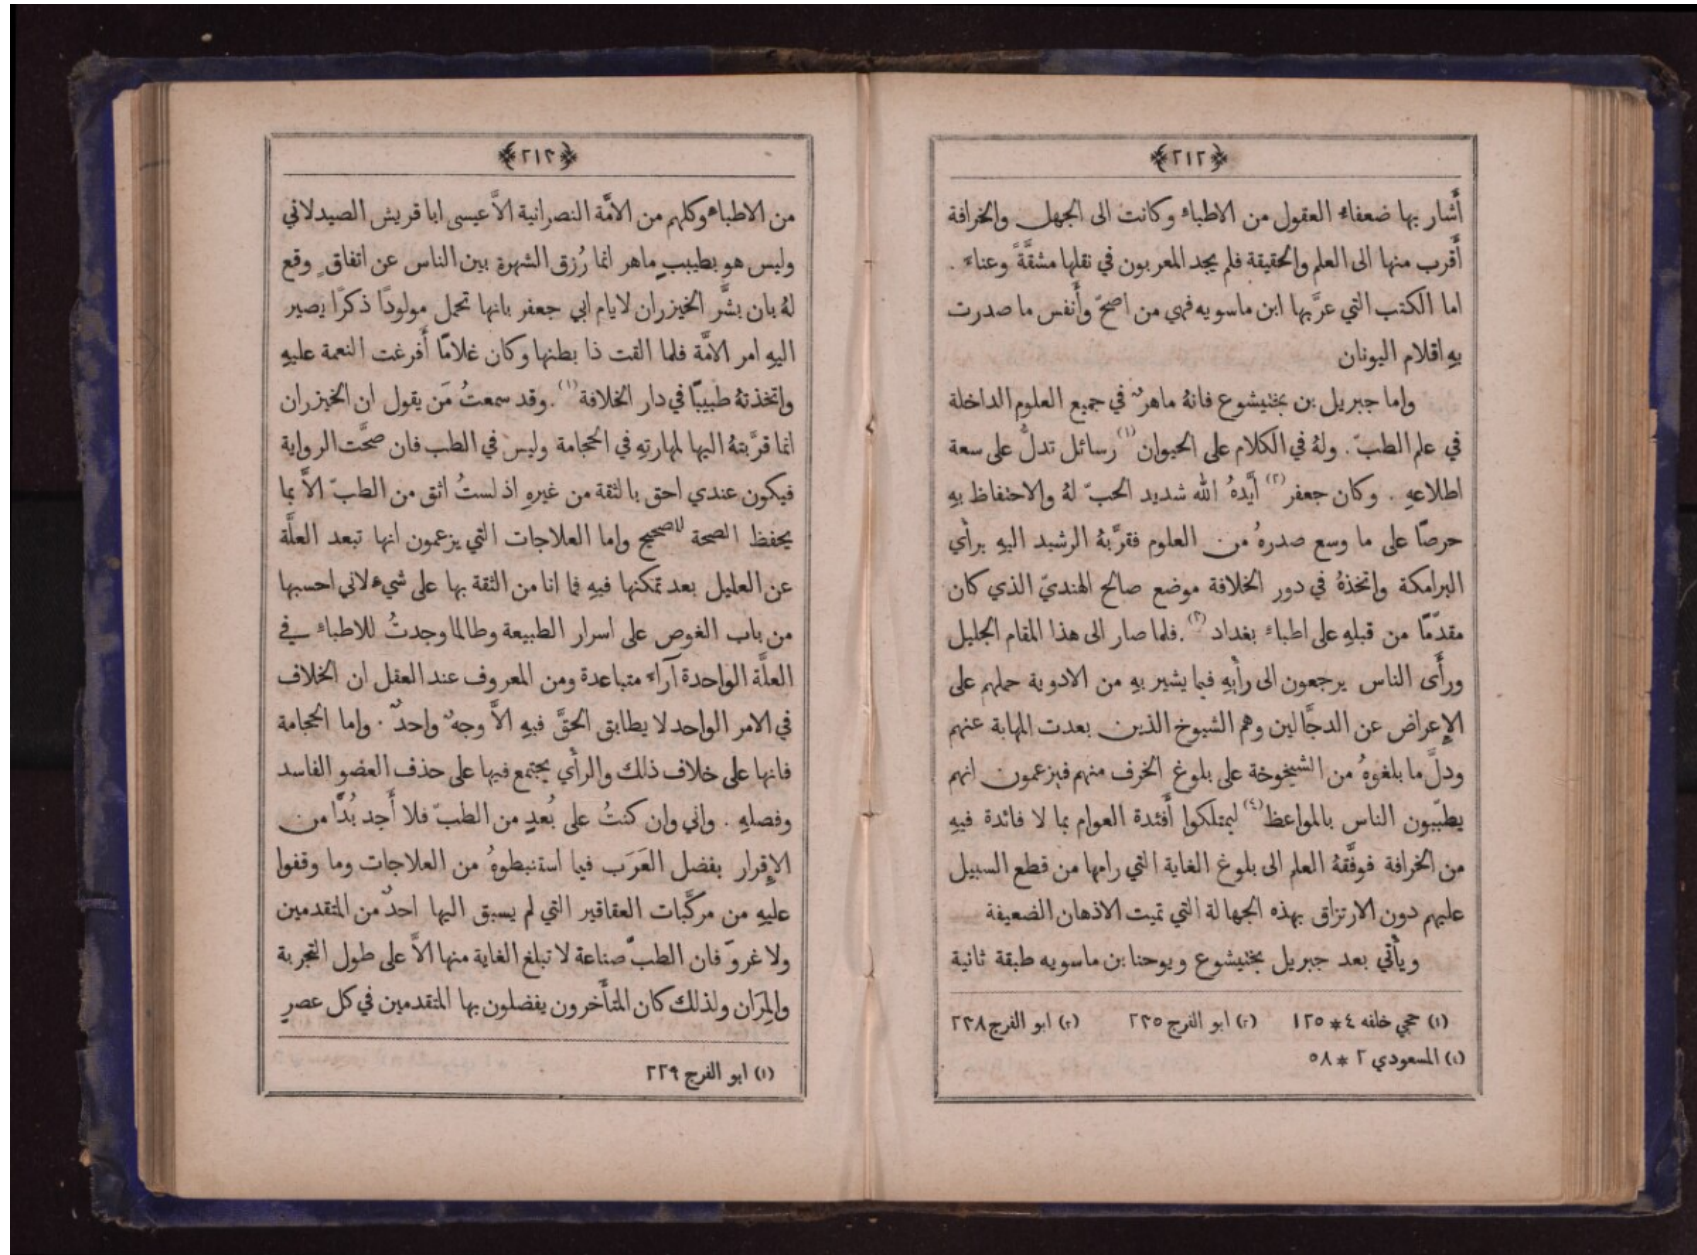 ﴿٢١٢﴾
أَشار بها ضعفاءُ العقول من الاطباءِ وكانت الى الجهل والخرافة
أَقرب منها الى العلم والحقيقة فلم يجد المعربون في نقلها مشقَّةً وعناءً .
اما الكتب التي عرَّبها ابن ماسويه فهي من اصحّ وأَنفس ما صدرت
بهِ اقلام اليونان
واما جبريل بن بختيشوع فانهُ ماهرٌ في جميع العلوم الداخلة
في علم الطبّ . ولهُ في الكلام على الحيوان (١) رسائل تدلُّ على سعة
اطلاعهِ . وكان جعفر (٢) أَيَّدهُ الله شديد الحبّ لهُ والاحتفاظ بهِ
حرصًا على ما وسع صدرهُ من العلوم فقرَّبهُ الرشيد اليهِ برأْي
البرامكة واتخذهُ في دور الخلافة موضع صالح الهنديّ الذي كان
مقدَّمًا من قبلهِ على اطباءِ بغداد (٣) . فلما صار الى هذا المقام الجليل
ورأَى الناس يرجعون الى رأْيهِ فيما يشير بهِ من الادوية حملهم على
الإِعراض عن الدجَّالين وهم الشيوخ الذين بعدت المهابة عنهم
ودلَّ ما بلغوهُ من الشيخوخة على بلوغ الخرف منهم فيزعمون انهم
يطبّبون الناس بالمواعظ (٤) ليمتلكوا أَفئدة العوام بما لا فائدة فيهِ
من الخرافة فوفَّقهُ العلم الى بلوغ الغاية التي رامها من قطع السبيل
عليهم دون الارتزاق بهذه الجهالة التي تميت الاذهان الضعيفة
ويأْتي بعد جبريل بختيشوع ويوحنا بن ماسويه طبقة ثانية
(١) حجي خلفه ٤ * ١٢٥ (٢) ابو الفرج ٢٣٥ (٣) ابو الفرج ٢٣٨
(٤) المسعودي ٢ * ٥٨
﴿٢١٣﴾
من الاطباءِ وكلهم من الامَّة النصرانية الاَّ عيسى ابا قريش الصيدلاني
وليس هو بطبيبٍ ماهر انما رُزق الشهرة بين الناس عن اتفاقٍ وقع
لهُ بان بشَّر الخيزران لايام ابي جعفر بانها تحمل مولودًا ذكرًا يصير
اليهِ امر الامَّة فلما القت ذا بطنها وكان غلامًا أَفرغت النعمة عليهِ
واتخذتهُ طبيبًا في دار الخلافة (١) . وقد سمعتُ مَن يقول ان الخيزران
انما قرَّبتهُ اليها لمهارتهِ في الحجامة وليس في الطب فان صحَّت الرواية
فيكون عندي احق بالثقة من غيرهِ اذ لستُ اثق من الطبّ الاَّ بما
يحفظ الصحة للصحيح واما العلاجات التي يزعمون انها تبعد العلَّة
عن العليل بعد تمكنها فيهِ فما انا من الثقة بها على شيءٍ لاني احسبها
من باب الغوص على اسرار الطبيعة وطالما وجدتُ للاطباءِ في
العلَّة الواحدة آراءً متباعدة ومن المعروف عند العقل ان الخلاف
في الامر الواحد لا يطابق الحقَّ فيهِ الاَّ وجهٌ واحدٌ . واما الحجامة
فانها على خلاف ذلك والرأْي يجتمع فيها على حذف العضو الفاسد
وفصلهِ . واني وان كنتُ على بُعدٍ من الطبّ فلا أَجد بُدًّا من
الإِقرار بفضل العَرَب فيما استنبطوهُ من العلاجات وما وقفوا
عليهِ من مركَّبات العقاقير التي لم يسبق اليها احدٌ من المتقدمين
ولا غروَ فان الطبّ صناعة لا تبلغ الغاية منها الاَّ على طول التجربة
والمِرَان ولذلك كان المتأَخرون يفضلون بها المتقدمين في كل عصرٍ
(١) ابو الفرج ٢٢٩